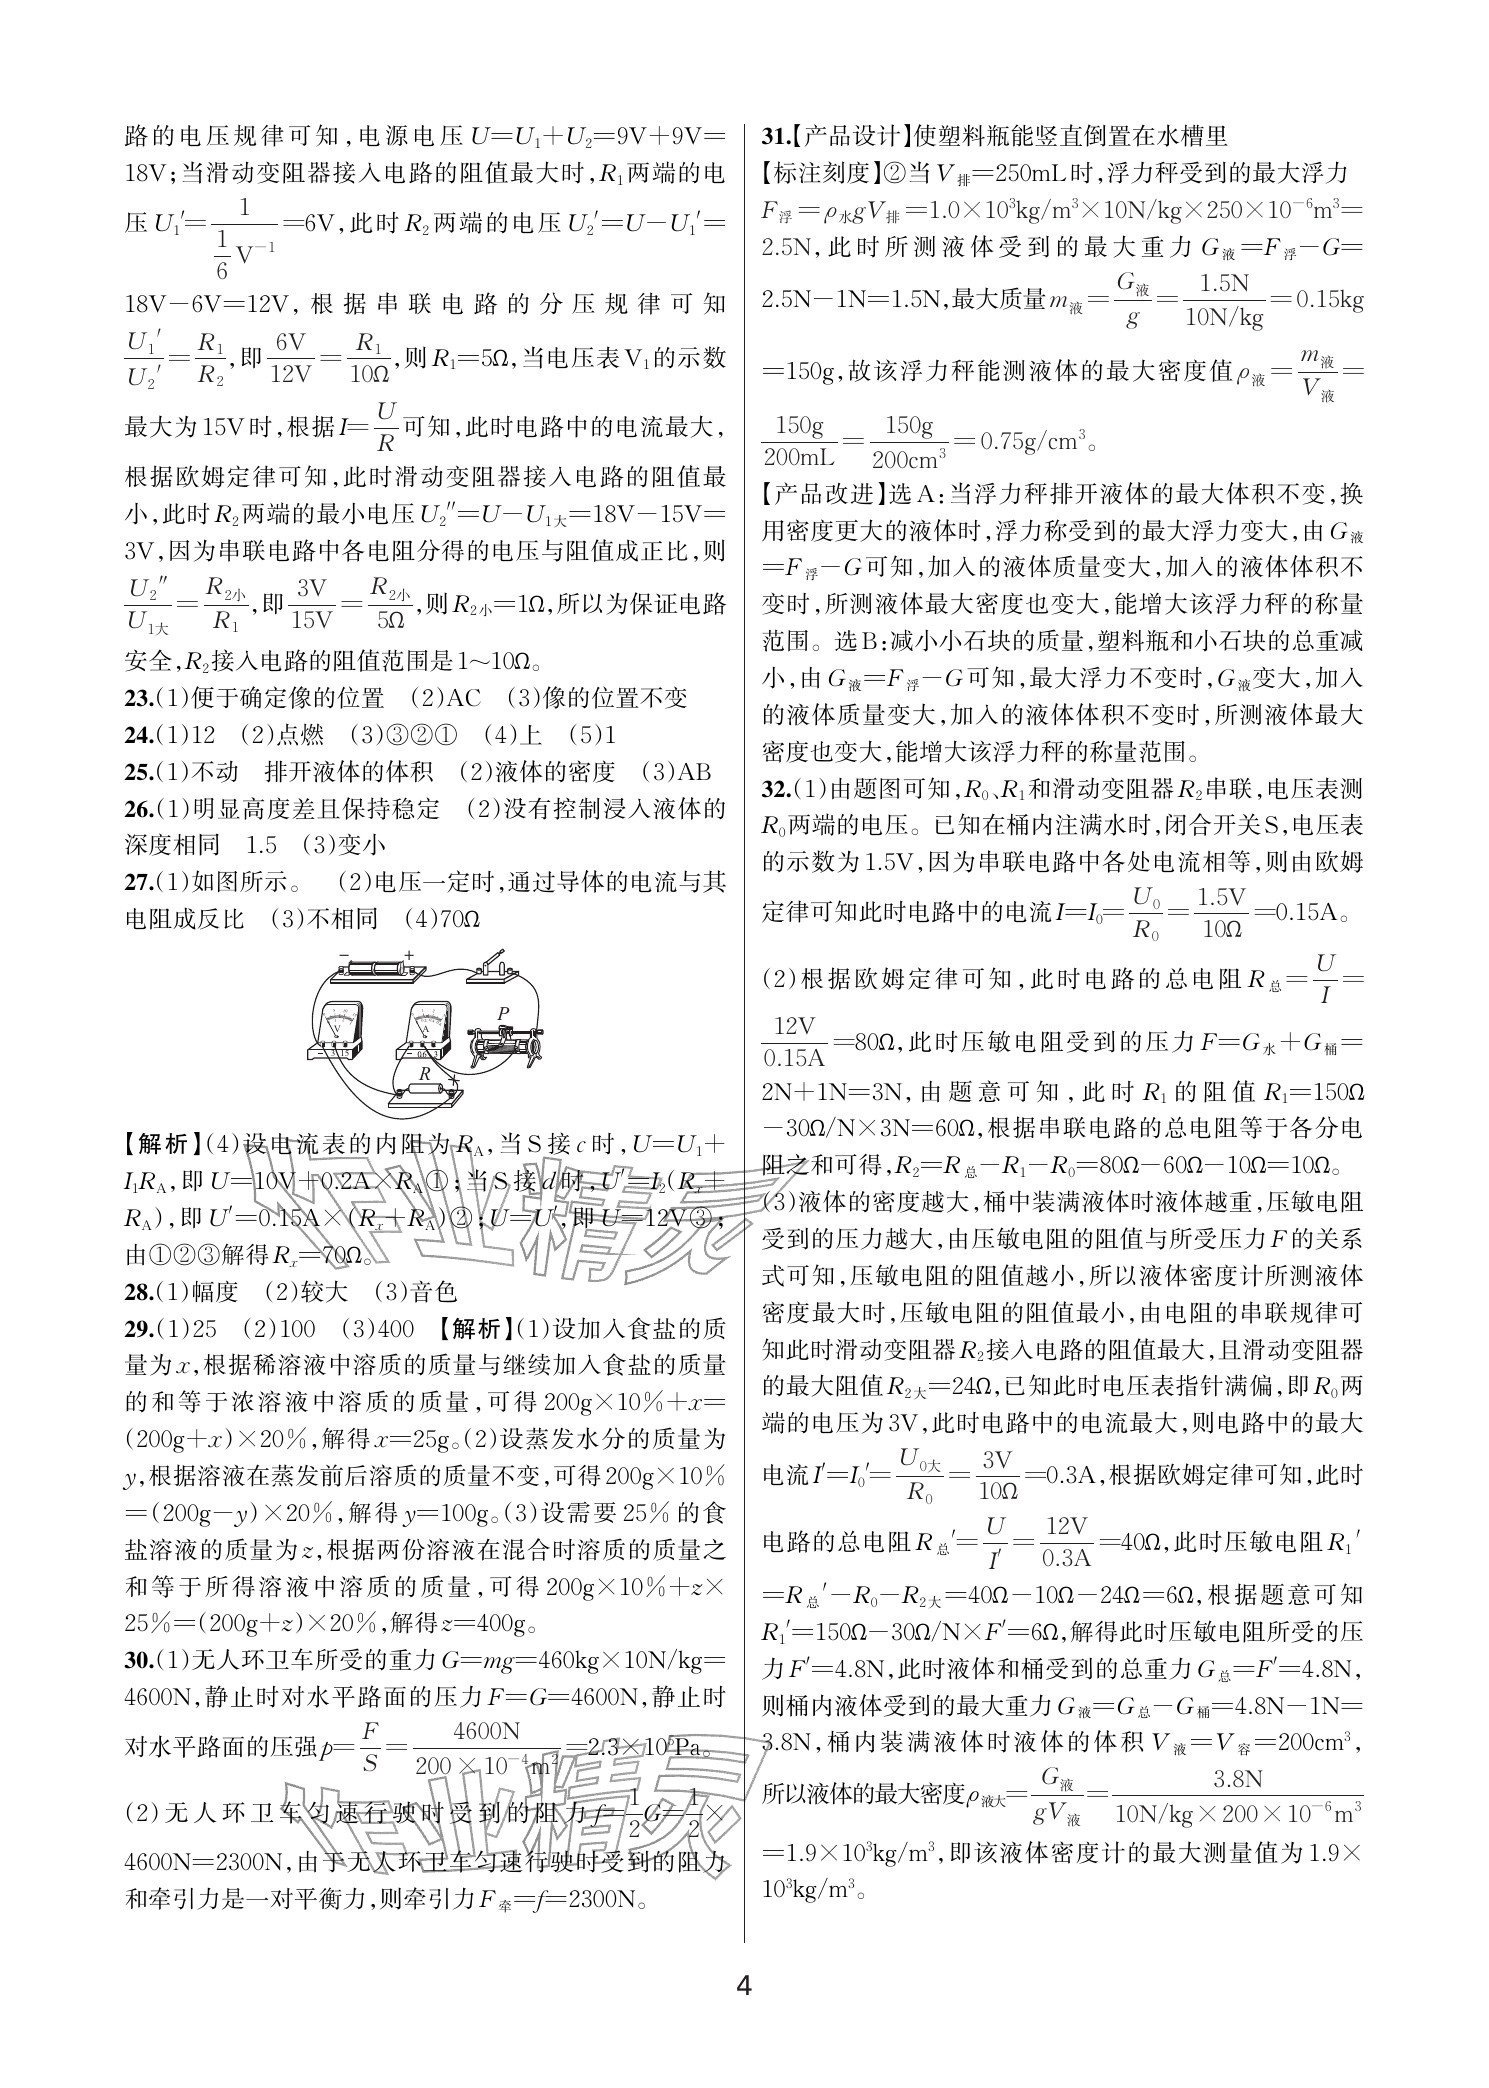 路的电压规律可知,电源电压U=U₁+U₂=9V+9V=
18V;当滑动变阻器接入电路的阻值最大时,R₁两端的电
压U₁′=1/(1/6 V⁻¹)=6V,此时R₂两端的电压U₂′=U-U₁′=
18V-6V=12V,根据串联电路的分压规律可知
U₁′/U₂′=R₁/R₂,即6V/12V=R₁/10Ω,则R₁=5Ω,当电压表V₁的示数
最大为15V时,根据I=U/R可知,此时电路中的电流最大,
根据欧姆定律可知,此时滑动变阻器接入电路的阻值最
小,此时R₂两端的最小电压U₂″=U-U₁大=18V-15V=
3V,因为串联电路中各电阻分得的电压与阻值成正比,则
U₂″/U₁大=R₂小/R₁,即3V/15V=R₂小/5Ω,则R₂小=1Ω,所以为保证电路
安全,R₂接入电路的阻值范围是1~10Ω。
23.(1)便于确定像的位置 (2)AC (3)像的位置不变
24.(1)12 (2)点燃 (3)③②① (4)上 (5)1
25.(1)不动 排开液体的体积 (2)液体的密度 (3)AB
26.(1)明显高度差且保持稳定 (2)没有控制浸入液体的
深度相同 1.5 (3)变小
27.(1)如图所示。 (2)电压一定时,通过导体的电流与其
电阻成反比 (3)不相同 (4)70Ω
- +
V
A
P
- 3 15
- 0.6 3
R
【解析】(4)设电流表的内阻为R_A,当S接c时,U=U₁+
I₁R_A,即U=10V+0.2A×R_A①;当S接d时,U′=I₂(Rₓ+
R_A),即U′=0.15A×(Rₓ+R_A)②;U=U′,即U=12V③;
由①②③解得Rₓ=70Ω。
28.(1)幅度 (2)较大 (3)音色
29.(1)25 (2)100 (3)400 【解析】(1)设加入食盐的质
量为x,根据稀溶液中溶质的质量与继续加入食盐的质量
的和等于浓溶液中溶质的质量,可得200g×10%+x=
(200g+x)×20%,解得x=25g。(2)设蒸发水分的质量为
y,根据溶液在蒸发前后溶质的质量不变,可得200g×10%
=(200g-y)×20%,解得y=100g。(3)设需要25%的食
盐溶液的质量为z,根据两份溶液在混合时溶质的质量之
和等于所得溶液中溶质的质量,可得200g×10%+z×
25%=(200g+z)×20%,解得z=400g。
30.(1)无人环卫车所受的重力G=mg=460kg×10N/kg=
4600N,静止时对水平路面的压力F=G=4600N,静止时
对水平路面的压强p=F/S=4600N/(200×10⁻⁴m²)=2.3×10⁵Pa。
(2)无人环卫车匀速行驶时受到的阻力f=1/2G=1/2×
4600N=2300N,由于无人环卫车匀速行驶时受到的阻力
和牵引力是一对平衡力,则牵引力F牵=f=2300N。
31.【产品设计】使塑料瓶能竖直倒置在水槽里
【标注刻度】②当V排=250mL时,浮力秤受到的最大浮力
F浮=ρ水gV排=1.0×10³kg/m³×10N/kg×250×10⁻⁶m³=
2.5N,此时所测液体受到的最大重力G液=F浮-G=
2.5N-1N=1.5N,最大质量m液=G液/g=1.5N/10N/kg=0.15kg
=150g,故该浮力秤能测液体的最大密度值ρ液=m液/V液=
150g/200mL=150g/200cm³=0.75g/cm³。
【产品改进】选A:当浮力秤排开液体的最大体积不变,换
用密度更大的液体时,浮力称受到的最大浮力变大,由G液
=F浮-G可知,加入的液体质量变大,加入的液体体积不
变时,所测液体最大密度也变大,能增大该浮力秤的称量
范围。选B:减小小石块的质量,塑料瓶和小石块的总重减
小,由G液=F浮-G可知,最大浮力不变时,G液变大,加入
的液体质量变大,加入的液体体积不变时,所测液体最大
密度也变大,能增大该浮力秤的称量范围。
32.(1)由题图可知,R₀、R₁和滑动变阻器R₂串联,电压表测
R₀两端的电压。已知在桶内注满水时,闭合开关S,电压表
的示数为1.5V,因为串联电路中各处电流相等,则由欧姆
定律可知此时电路中的电流I=I₀=U₀/R₀=1.5V/10Ω=0.15A。
(2)根据欧姆定律可知,此时电路的总电阻R总=U/I=
12V/0.15A=80Ω,此时压敏电阻受到的压力F=G水+G桶=
2N+1N=3N,由题意可知,此时R₁的阻值R₁=150Ω
-30Ω/N×3N=60Ω,根据串联电路的总电阻等于各分电
阻之和可得,R₂=R总-R₁-R₀=80Ω-60Ω-10Ω=10Ω。
(3)液体的密度越大,桶中装满液体时液体越重,压敏电阻
受到的压力越大,由压敏电阻的阻值与所受压力F的关系
式可知,压敏电阻的阻值越小,所以液体密度计所测液体
密度最大时,压敏电阻的阻值最小,由电阻的串联规律可
知此时滑动变阻器R₂接入电路的阻值最大,且滑动变阻器
的最大阻值R₂大=24Ω,已知此时电压表指针满偏,即R₀两
端的电压为3V,此时电路中的电流最大,则电路中的最大
电流I′=I₀′=U₀大/R₀=3V/10Ω=0.3A,根据欧姆定律可知,此时
电路的总电阻R总′=U/I′=12V/0.3A=40Ω,此时压敏电阻R₁′
=R总′-R₀-R₂大=40Ω-10Ω-24Ω=6Ω,根据题意可知
R₁′=150Ω-30Ω/N×F′=6Ω,解得此时压敏电阻所受的压
力F′=4.8N,此时液体和桶受到的总重力G总=F′=4.8N,
则桶内液体受到的最大重力G液=G总-G桶=4.8N-1N=
3.8N,桶内装满液体时液体的体积V液=V容=200cm³,
所以液体的最大密度ρ液大=G液/gV液=3.8N/(10N/kg×200×10⁻⁶m³)
=1.9×10³kg/m³,即该液体密度计的最大测量值为1.9×
10³kg/m³。
作业精灵
作业精灵
4